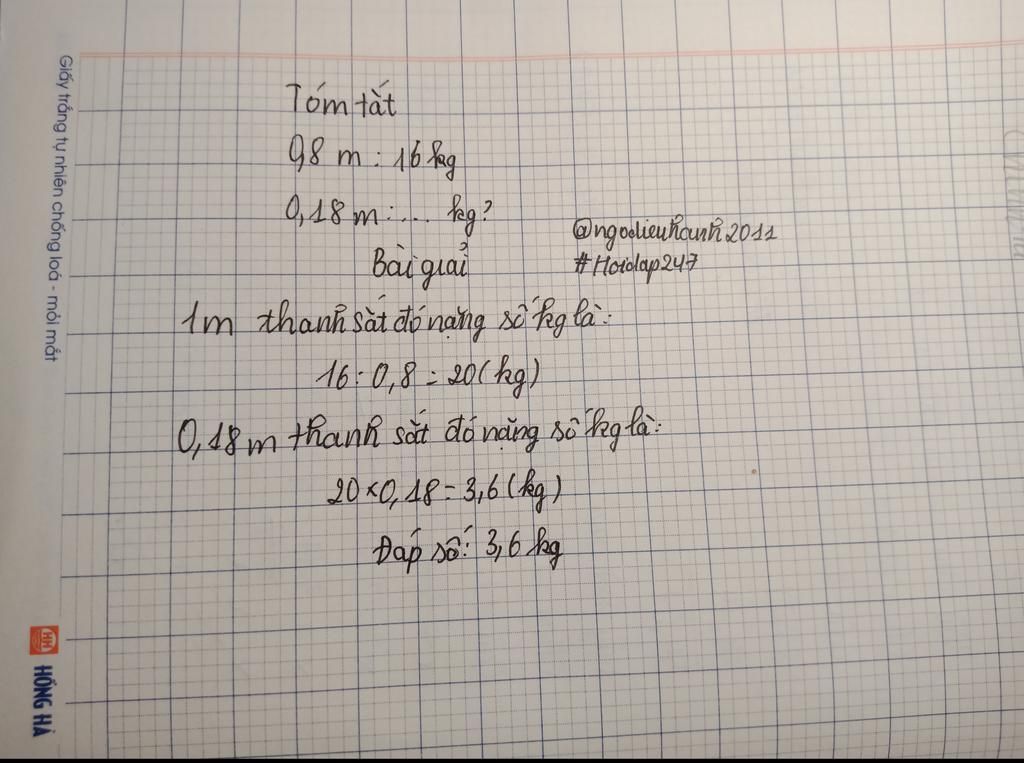 Giấy trắng tự nhiên chống loá - mỏi mắt
Tóm tắt
0,8 m : 16 kg
0,18 m : ... kg?
@ngodieukhanh2011
#Hoidap247
Bài giải
1m thanh sắt đó nặng số kg là:
16 : 0,8 = 20 (kg)
0,18 m thanh sắt đó nặng số kg là:
20 x 0,18 = 3,6 (kg)
Đáp số: 3,6 kg
HH
HỒNG HÀ